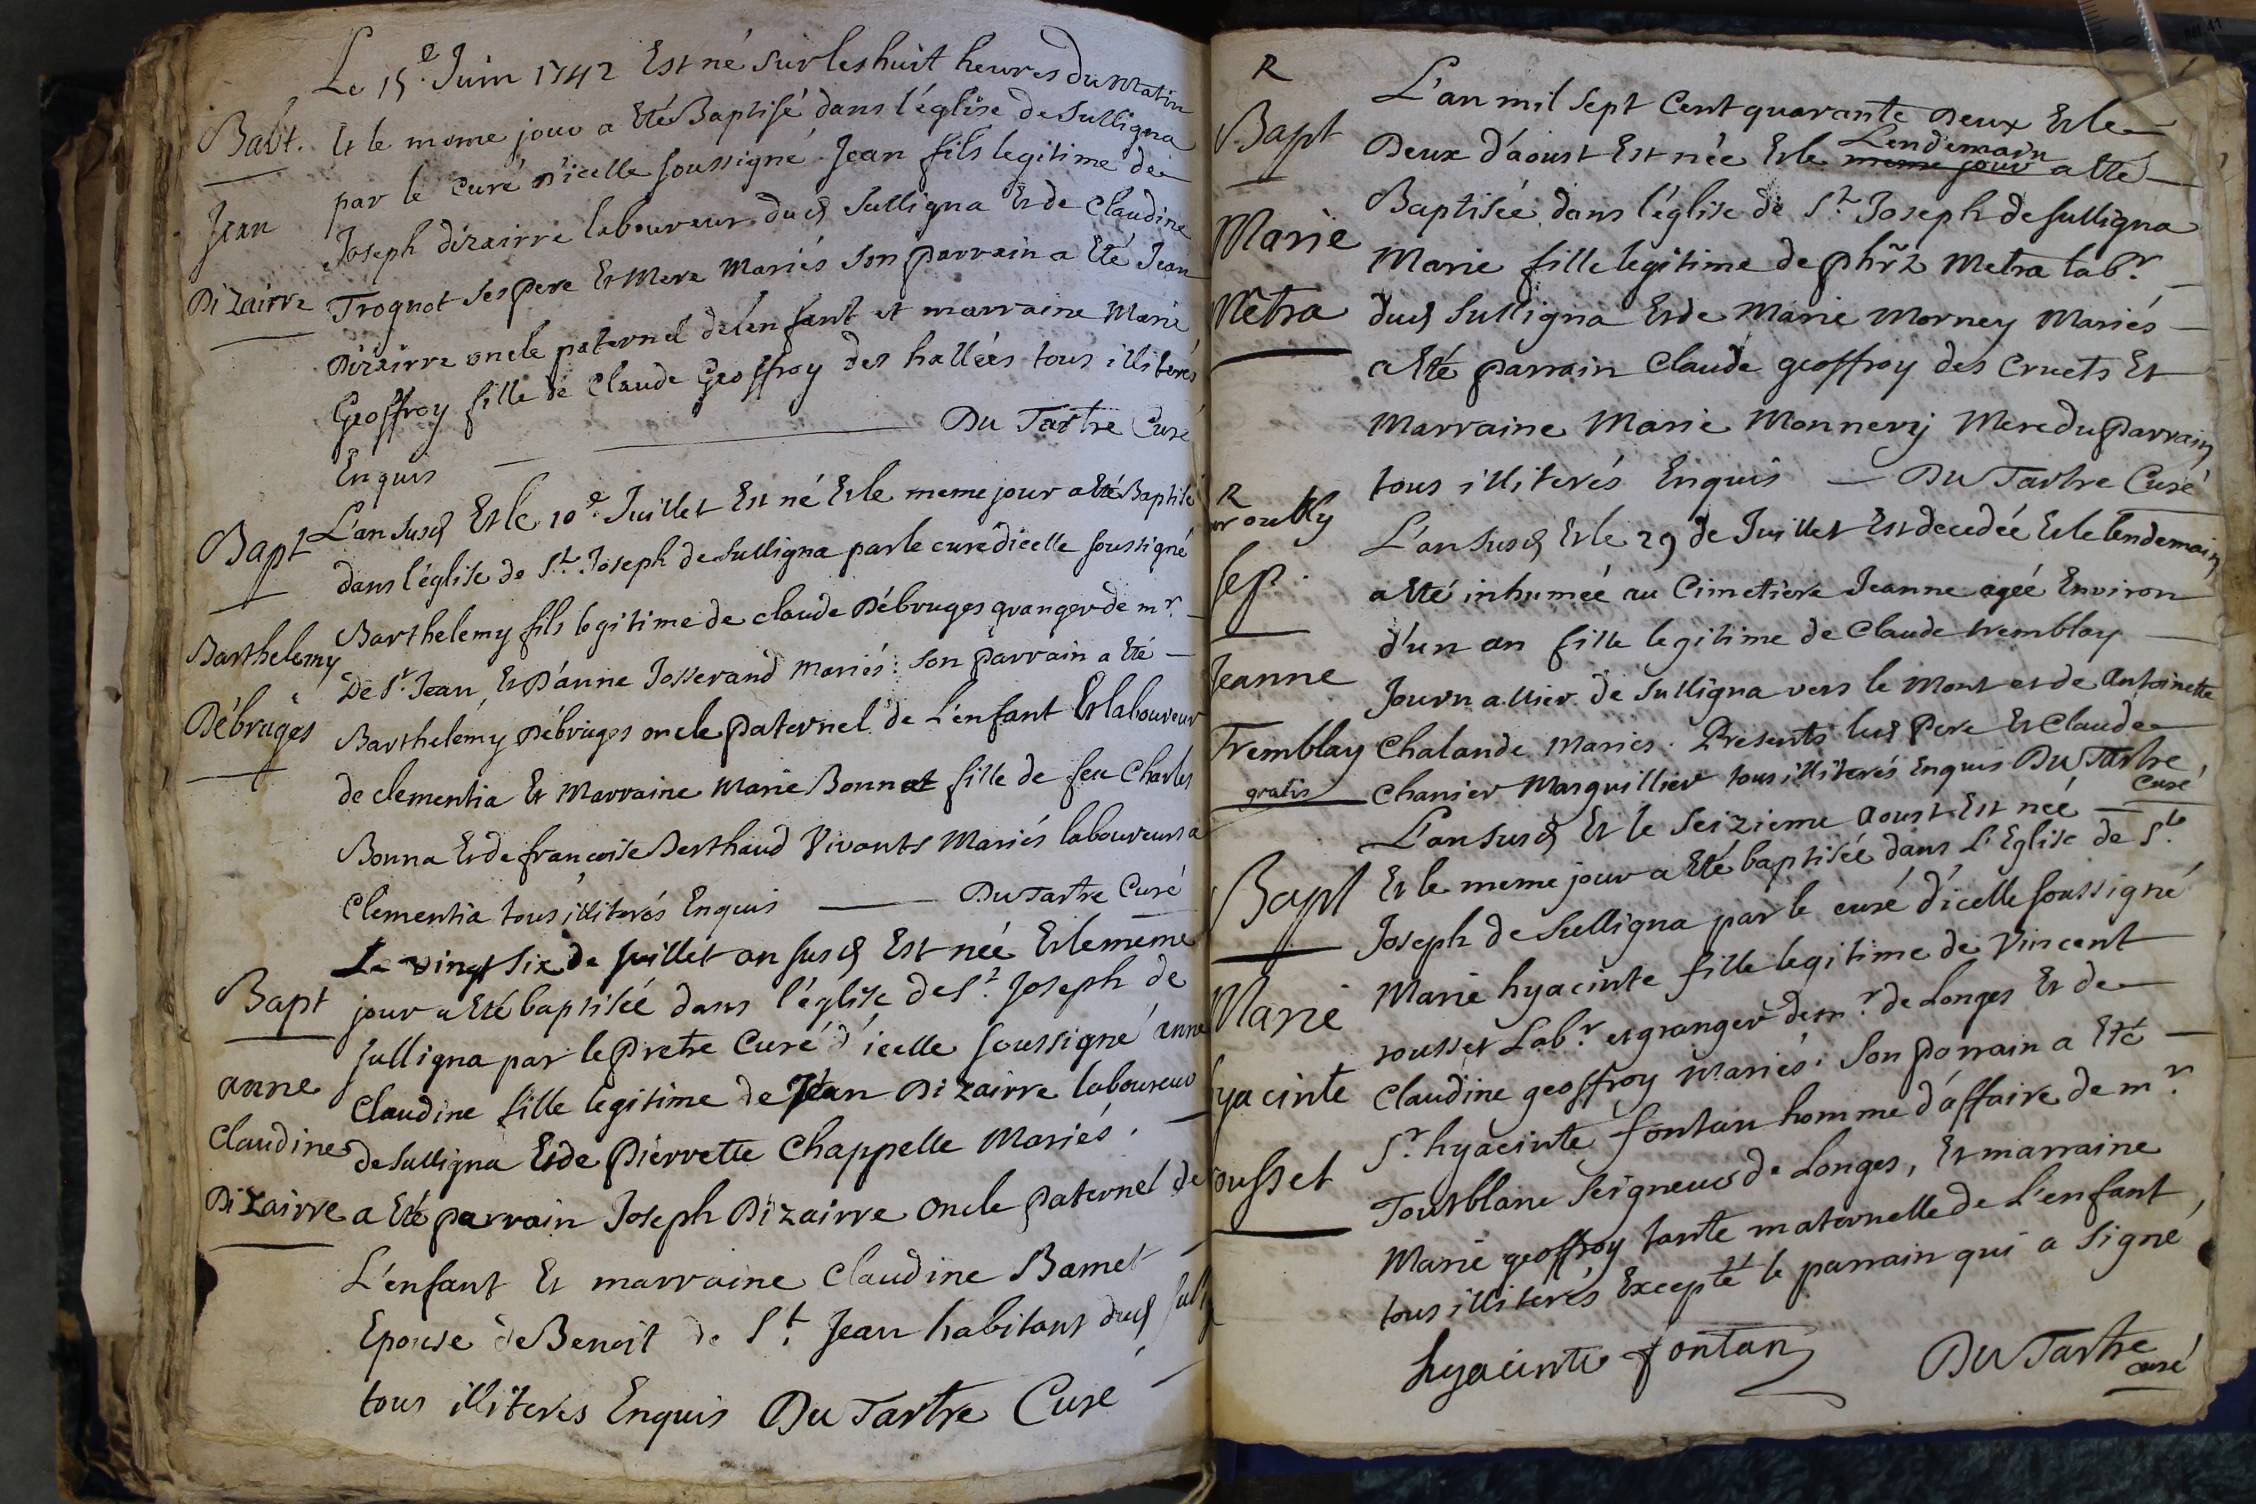 Le 15.e Juin 1742 Est né sur les huit heures du matin
Babt. Et le meme jour a Eté Baptisé dans l'église de Sulligna
par le Curé d'icelle soussigné Jean fils legitime de
Jean
Joseph dizairre laboureur dud Sulligna Et de Claudine
Dizairre Troquot ses pere Et Mere Mariés Son parrain a Eté Jean
Dizairre oncle paternel de lenfant et marraine Marie
Geoffroy fille de Claude Geoffroy des hallées tous illiterés
Enquis — Du Tartre Curé
Bapt L'an susd Et le 10.e Juillet Est né Et le meme jour a Eté Baptisé
dans l'église de St. Joseph de Sulligna par le curé dicelle soussigné
Barthelemy Barthelemy fils legitime de claude Débruges granger de mr. —
De St. Jean, Et D'anne Josserand Mariés : son parrain a Eté —
Débruges Barthelémy Débruges oncle paternel de L'enfant Et laboureur
de clementia Et Marraine Marie Bonnat fille de feu Charles
Bonna Et de francoise Berthaud Vivants Mariés laboureurs a
Clementia tous illiterés Enquis — Du Tartre Curé
Le vingt six de Juillet an susd Est née Et le meme
Bapt jour a Eté baptisée dans l'église de St. Joseph de
Sulligna par le Pretre Curé d'icelle soussigné anne
anne Claudine fille legitime de Jean Dizairre laboureur
Claudine de Sulligna Et de Pierrette Chappelle Mariés. —
Dizairre a Eté parrain Joseph Dizairre Oncle paternel de
L'enfant Et marraine Claudine Bamet —
Epouse de Benoit de St. Jean habitans dud
tous illiterés Enquis Du Tartre Curé —
R
L'an mil sept Cent quarante Deux Et le —
Bapt Lendemain
Deux d'aoust Est née Et le meme jour a Eté —
Baptisée dans l'église de St. Joseph de Sulligna
Marie Marie fille legitime de phr̃t Metra labr.
Mêtra dud Sulligna Et de Marie Morney Mariés —
a Eté parrain Claude geoffroy des Cruets Et
Marraine Marie Monnery Mere du parrain
tous illiterés Enquis — Du Tartre Curé
R
L'an susd Et le 29 de Juillet Est decedée Et le lendemain
Sep. a Eté inhumée au Cimetiére Jeanne agée Environ
d'un an fille legitime de Claude tremblay —
Jeanne Journallier de Sulligna vers le Mont et de Antoinette
Tremblay Chalande Mariés. Presents lud Pere Et Claude
gratis Chanier Marguillier tous illiterés Enquis Du Tartre
Curé
L'an susd Et le seizieme aoust Est née —
Bapt Et le meme jour a Eté baptisée dans L'Eglise de St.
Joseph de Sulligna par le curé d'icelle soussigné
Marie Marie hyacinte fille legitime de Vincent
rousset Labr. et granger de mr. de Longes Et de —
hyacinte Claudine geoffroy Mariés. Son parrain a Eté —
Sr. hyacinte fontan homme d'affaire de mr.
rousset Tourblanc Seigneur de Longes, Et marraine
Marie geoffroy tante maternelle de L'enfant
tous illiterés Excepté le parrain qui a signé
hyacinte fontan Du Tartre
curé